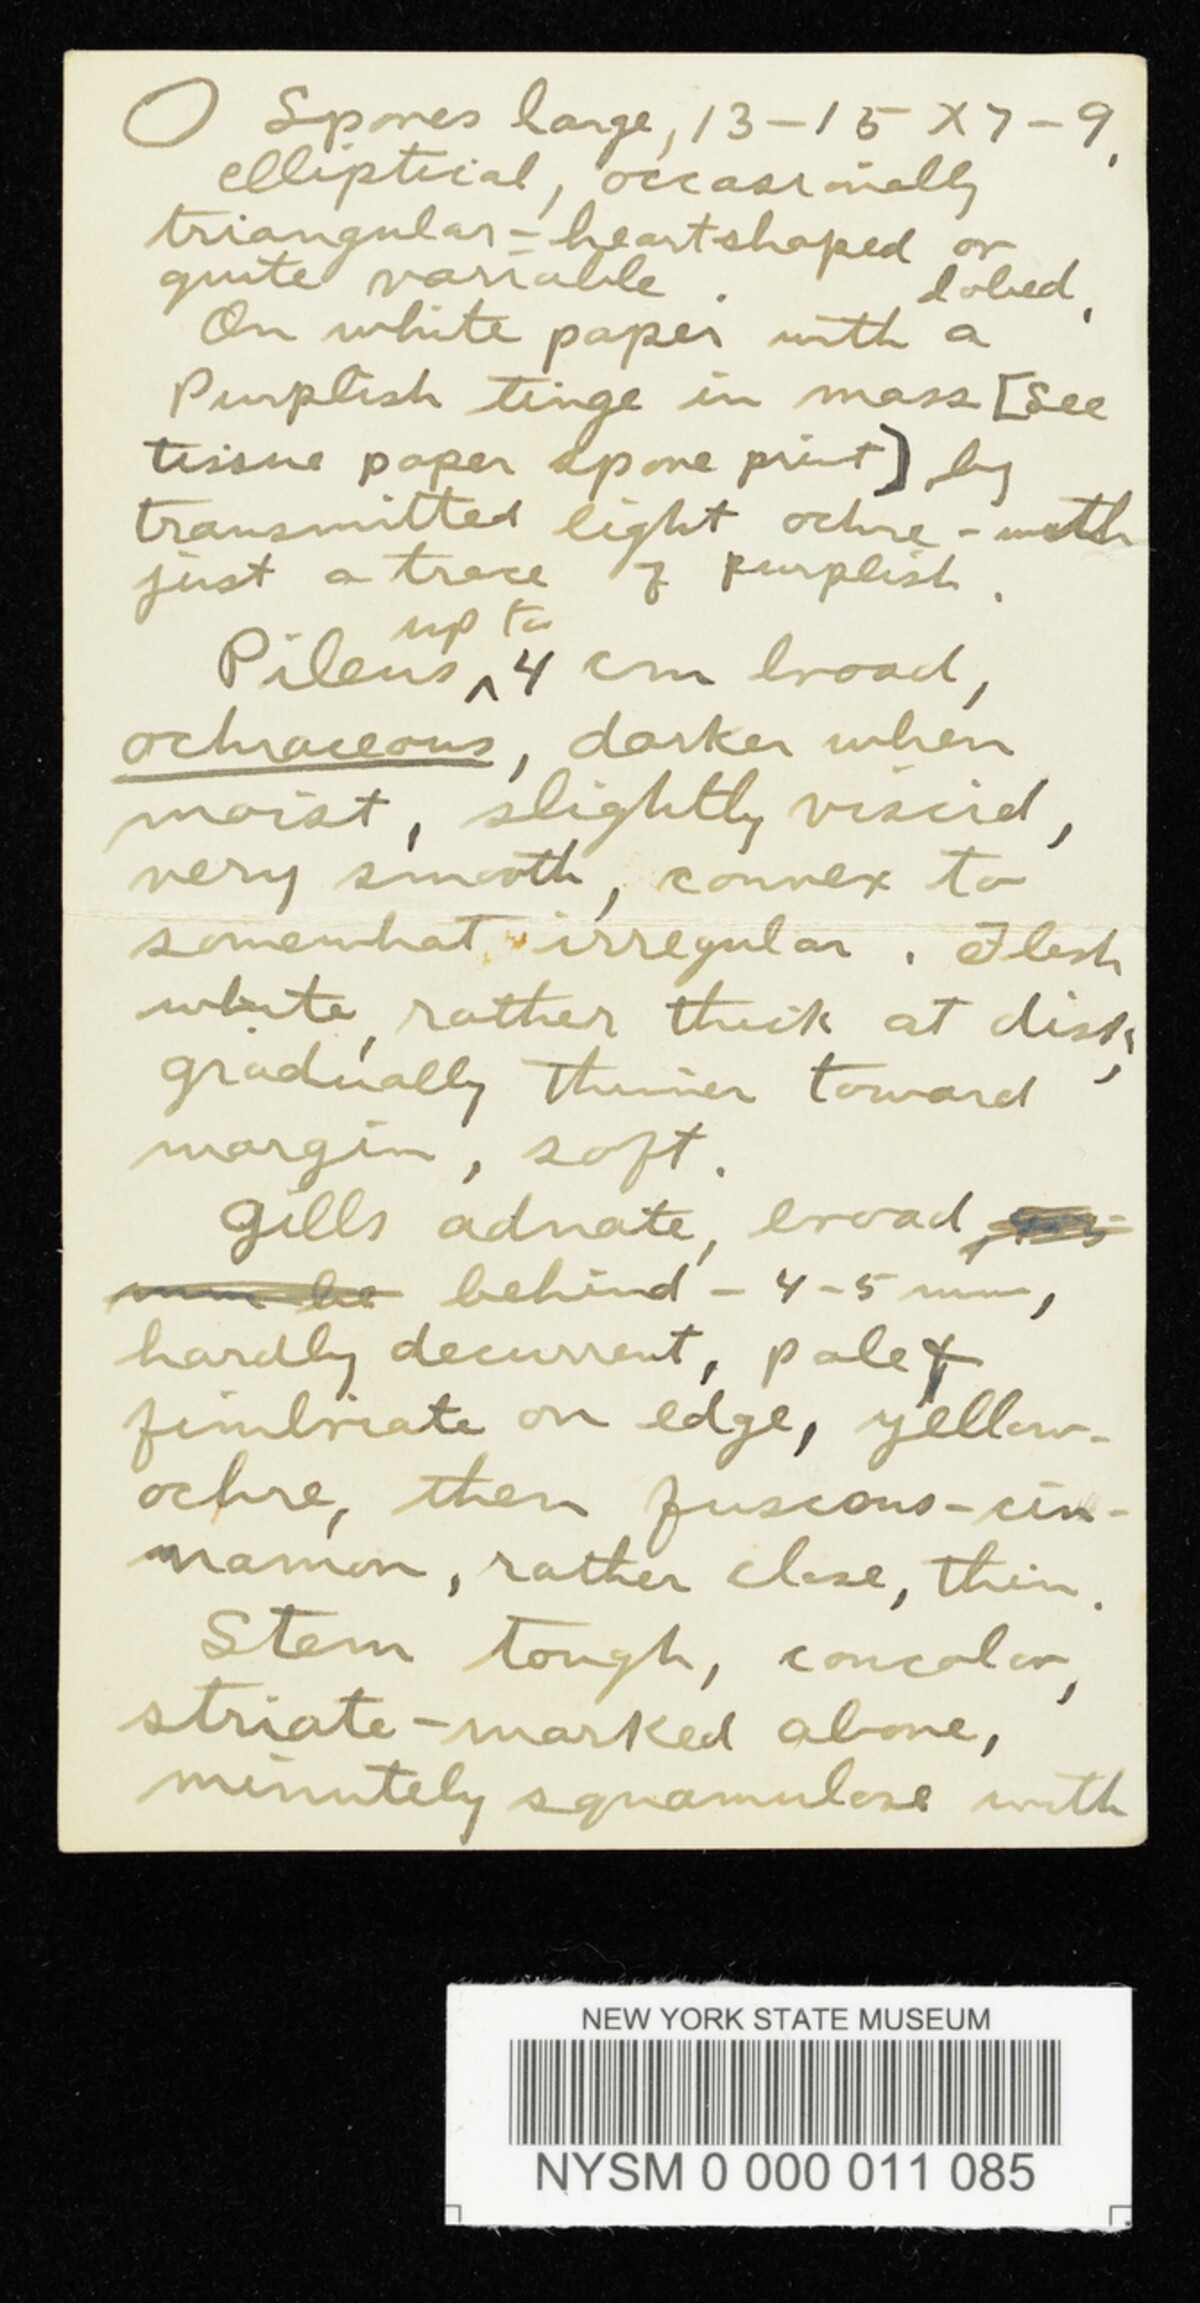 Spores large, 13-15 X 7-9,
elliptical, occasionally
triangular-heartshaped or
lobed,
quite variable.
On white paper with a
Purplish tinge in mass [See
tissue paper spore print] by
transmitted light ochre - with
just a trace of purplish.
up to
Pileus ^ 4 cm broad,
ochraceous, darker when
moist, slightly viscid,
very smooth, convex to
somewhat irregular. Flesh
white, rather thick at disk,
gradually thinner toward
margin, soft.
Gills adnate, broad,
behind - 4-5 mm,
hardly decurrent, pale &
fimbriate on edge, yellow-
ochre, then fuscous-cin-
namon, rather close, thin.
Stem tough, concolor,
striate-marked above,
minutely squamulose with
NEW YORK STATE MUSEUM
NYSM 0 000 011 085